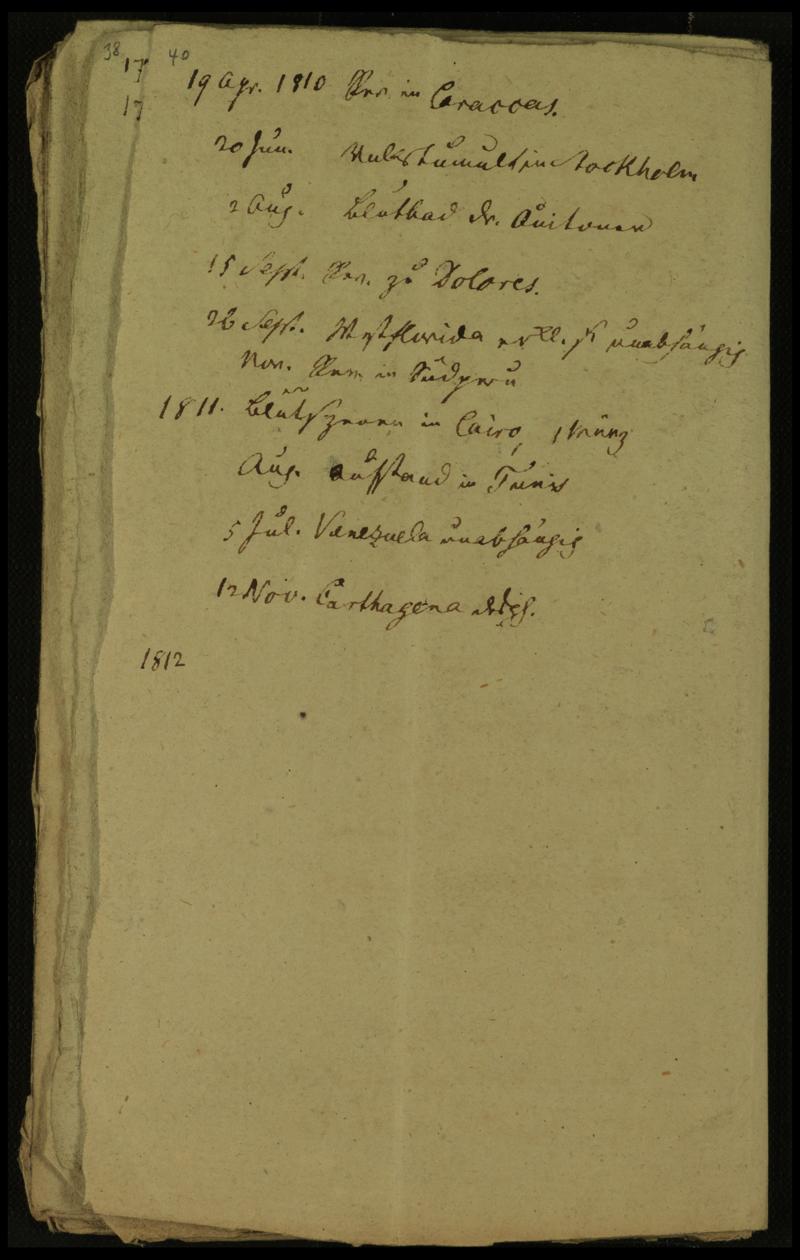 38
40
17
17
19 Apr. 1810 Rev. in Caraccas.
20 Jun. Volkstumult in Stockholm
2 Aug. Blutbad dr. Quitoner
15 Sept. Rev. zu Dolores.
26 Sept. Westflorida erkl. s. unabhängig
Nov. Rev. in Südperu
1811. Blutszenen in Cairo, 1 März
Aug. Aufstand in Tunis
5 Jul. Venezuela unabhängig
12 Nov. Carthagena dsgl.
1812